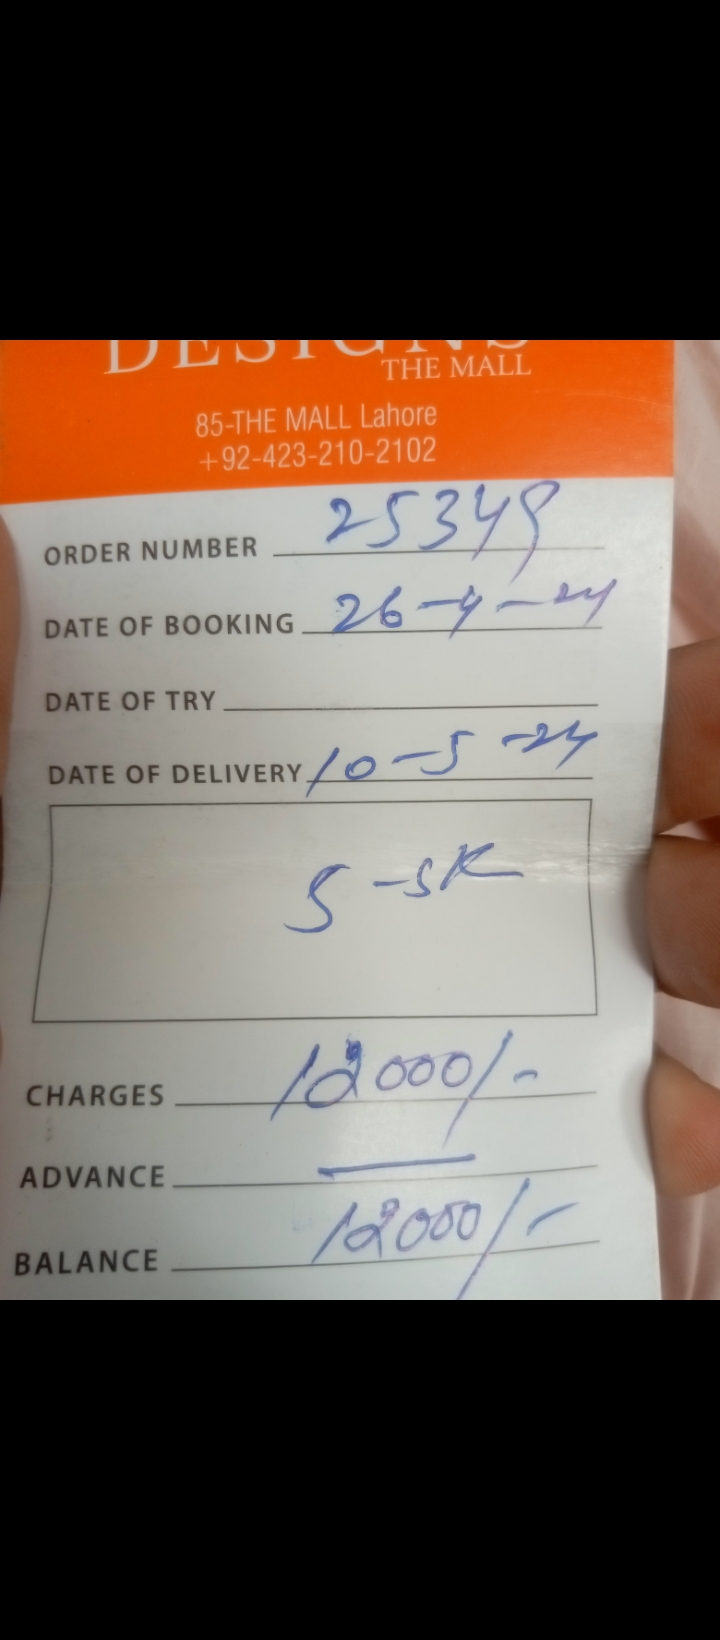 DESIGNS
THE MALL
85-THE MALL Lahore
+92-423-210-2102
ORDER NUMBER 25349
DATE OF BOOKING 26-4-24
DATE OF TRY
DATE OF DELIVERY 10-5-24
5-SK
CHARGES 12000/-
ADVANCE —
BALANCE 12000/-